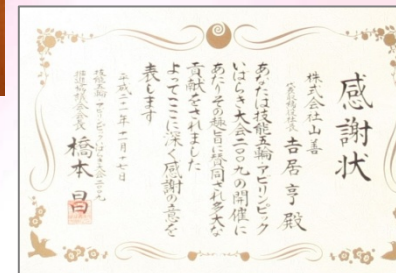 感謝状
株式会社山善
代表取締役社長 吉居亨殿
あなたは技能五輪アビリンピック
いばらき大会二〇〇九の開催に
あたりその趣旨に賛同され多大な
貢献をされました
よってここに深く感謝の意を
表します
平成二十一年十一月十七日
技能五輪・アビリンピックいばらき大会二〇〇九
推進協議会会長 橋本昌